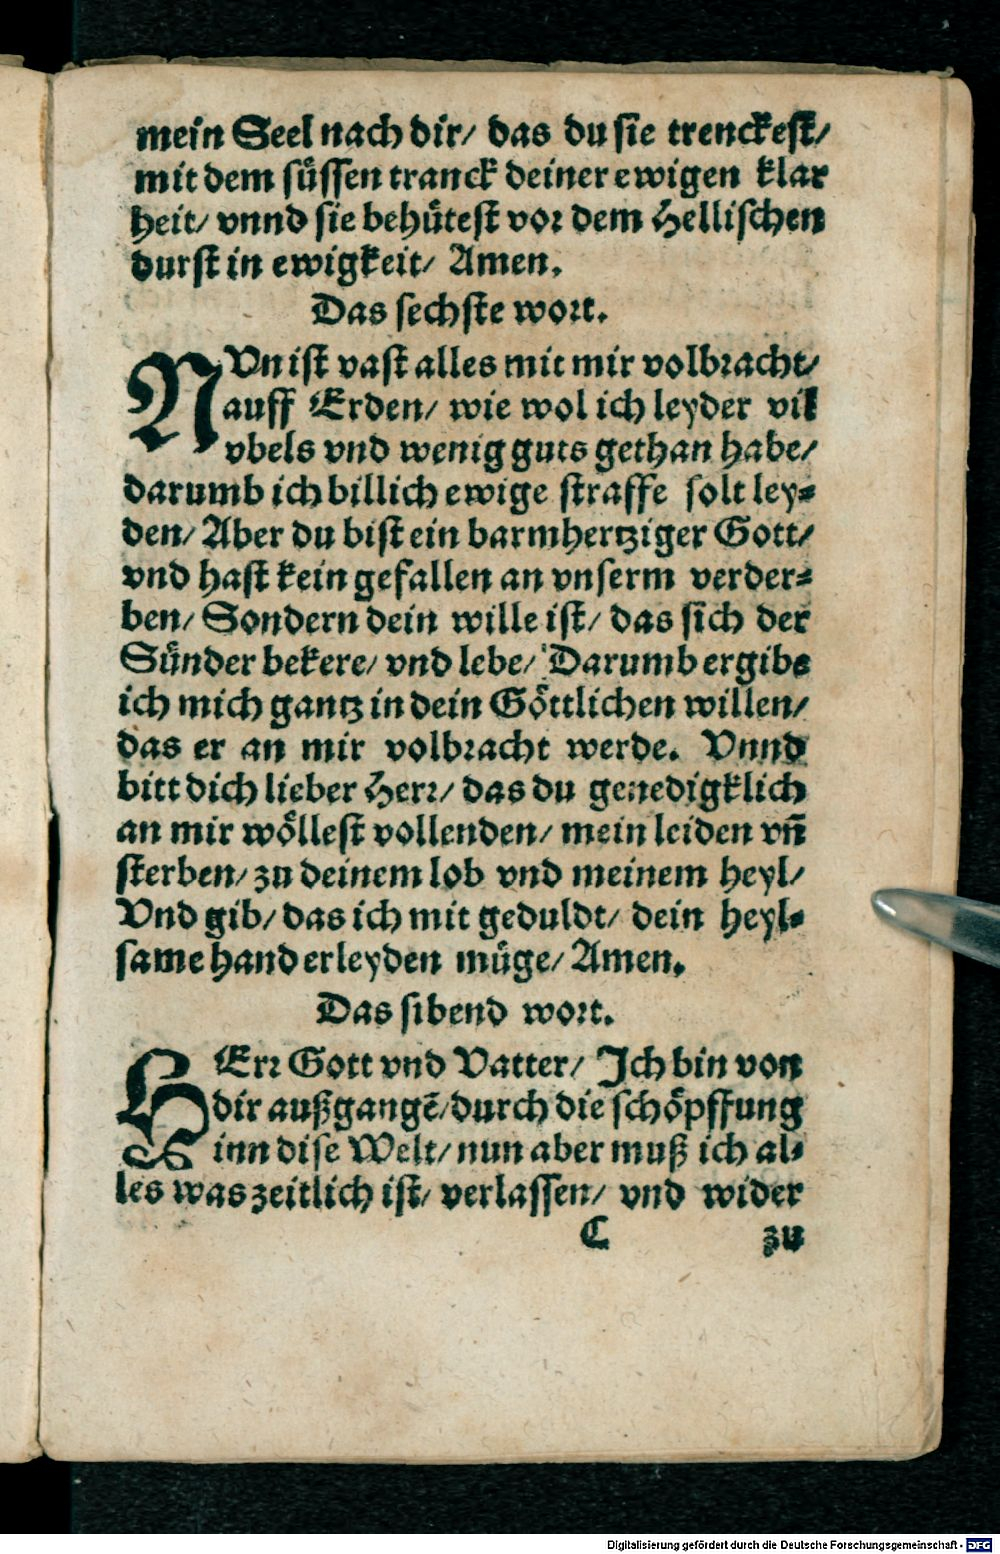 mein Seel nach dir/ das du sie trenckest/
mit dem süssen tranck deiner ewigen klar
heit/ vnnd sie behütest vor dem Hellischen
durst in ewigkeit/ Amen.
Das sechste wort.
NVn ist vast alles mit mir volbracht/
auff Erden/ wie wol ich leyder vil
vbels vnd wenig guts gethan habe/
darumb ich billich ewige straffe solt ley-
den/ Aber du bist ein barmhertziger Gott/
vnd hast kein gefallen an vnserm verder-
ben/ Sondern dein wille ist/ das sich der
Sünder bekere/ vnd lebe/ Darumb ergibe
ich mich gantz in dein Göttlichen willen/
das er an mir volbracht werde. Vnnd
bitt dich lieber Herr/ das du genedigklich
an mir wöllest vollenden/ mein leiden vñ
sterben/ zu deinem lob vnd meinem heyl/
Vnd gib/ das ich mit geduldt/ dein heyl-
same hand erleyden müge/ Amen.
Das sibend wort.
HErr Gott vnd Vatter/ Ich bin von
dir außgangē/ durch die schöpffung
inn dise Welt/ nun aber muß ich al-
les was zeitlich ist/ verlassen/ vnd wider
C zu
Digitalisierung gefördert durch die Deutsche Forschungsgemeinschaft - DFG